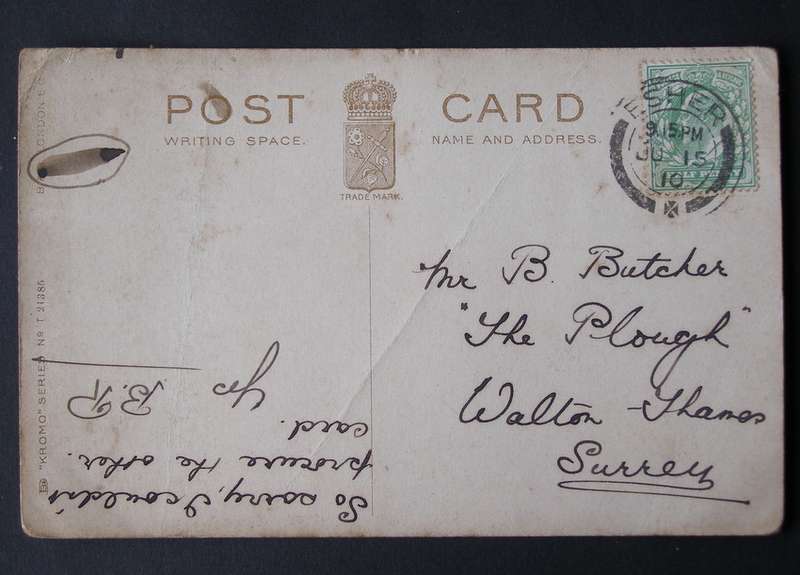 POST CARD
WRITING SPACE.
NAME AND ADDRESS.
TRADE MARK.
ESHER
9.15PM
JU 15
10
Mr B. Butcher
"The Plough"
Walton-Thames
Surrey
So sorry, I couldn't
procure the other
card.
Yrs
B.R
"KROMO" SERIES Nº T 21385